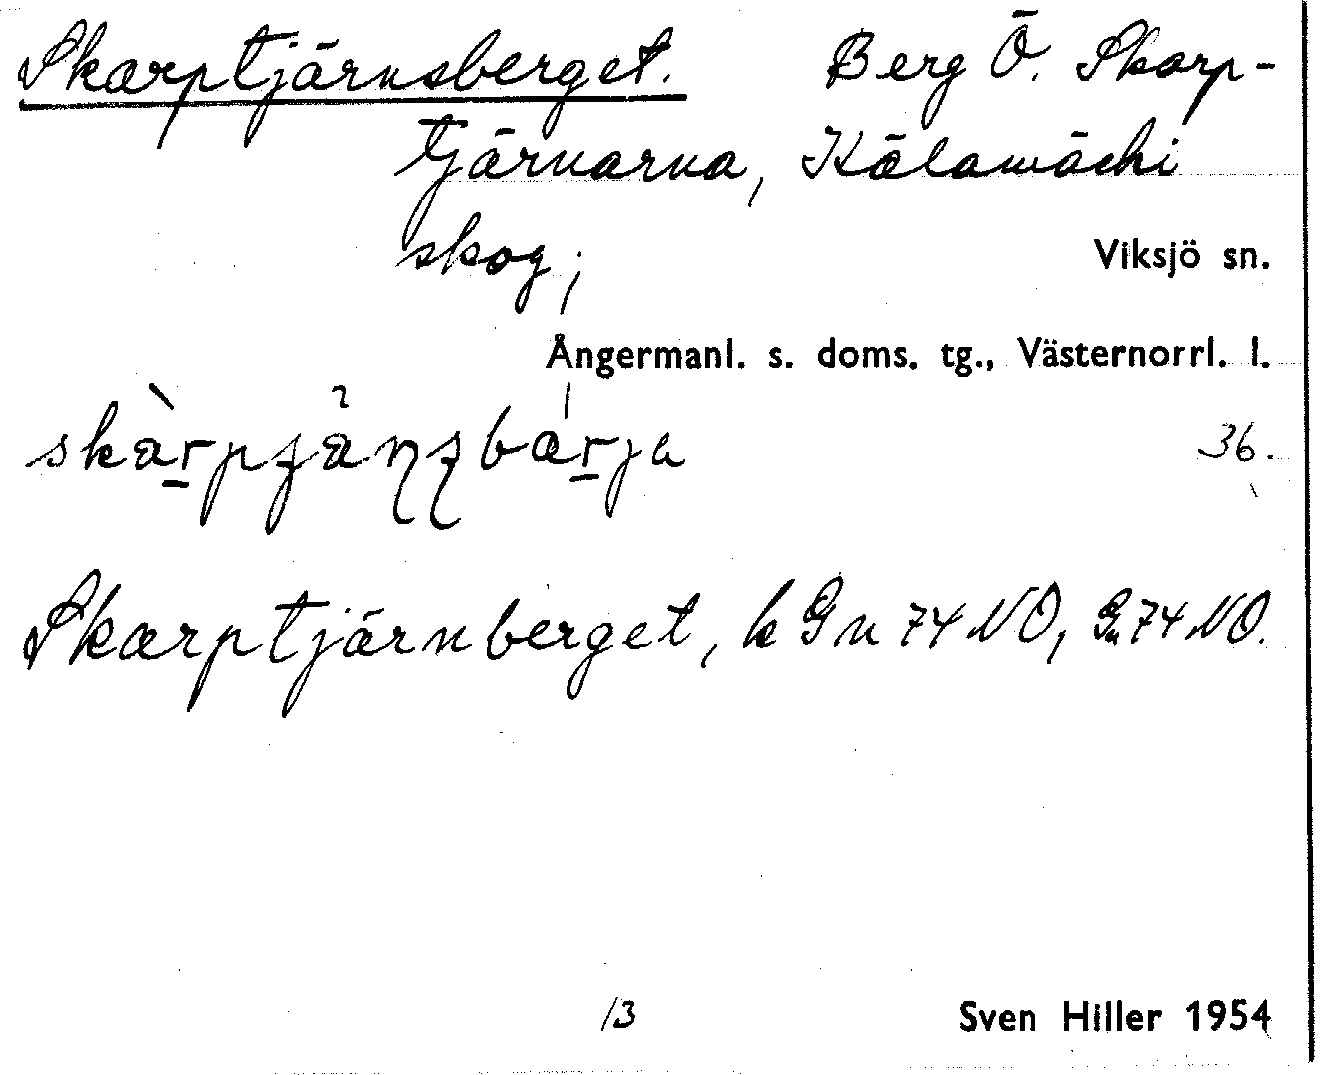 Skarptjärnsberget. Berg Ö. Skarp-
tjärnarna,
skog;
Viksjö sn.
Ångermanl. s. doms. tg., Västernorrl. l.
36.
Skarptjärnberget, k Gn 74 NO, Gn 74 NO.
13
Sven Hiller 1954